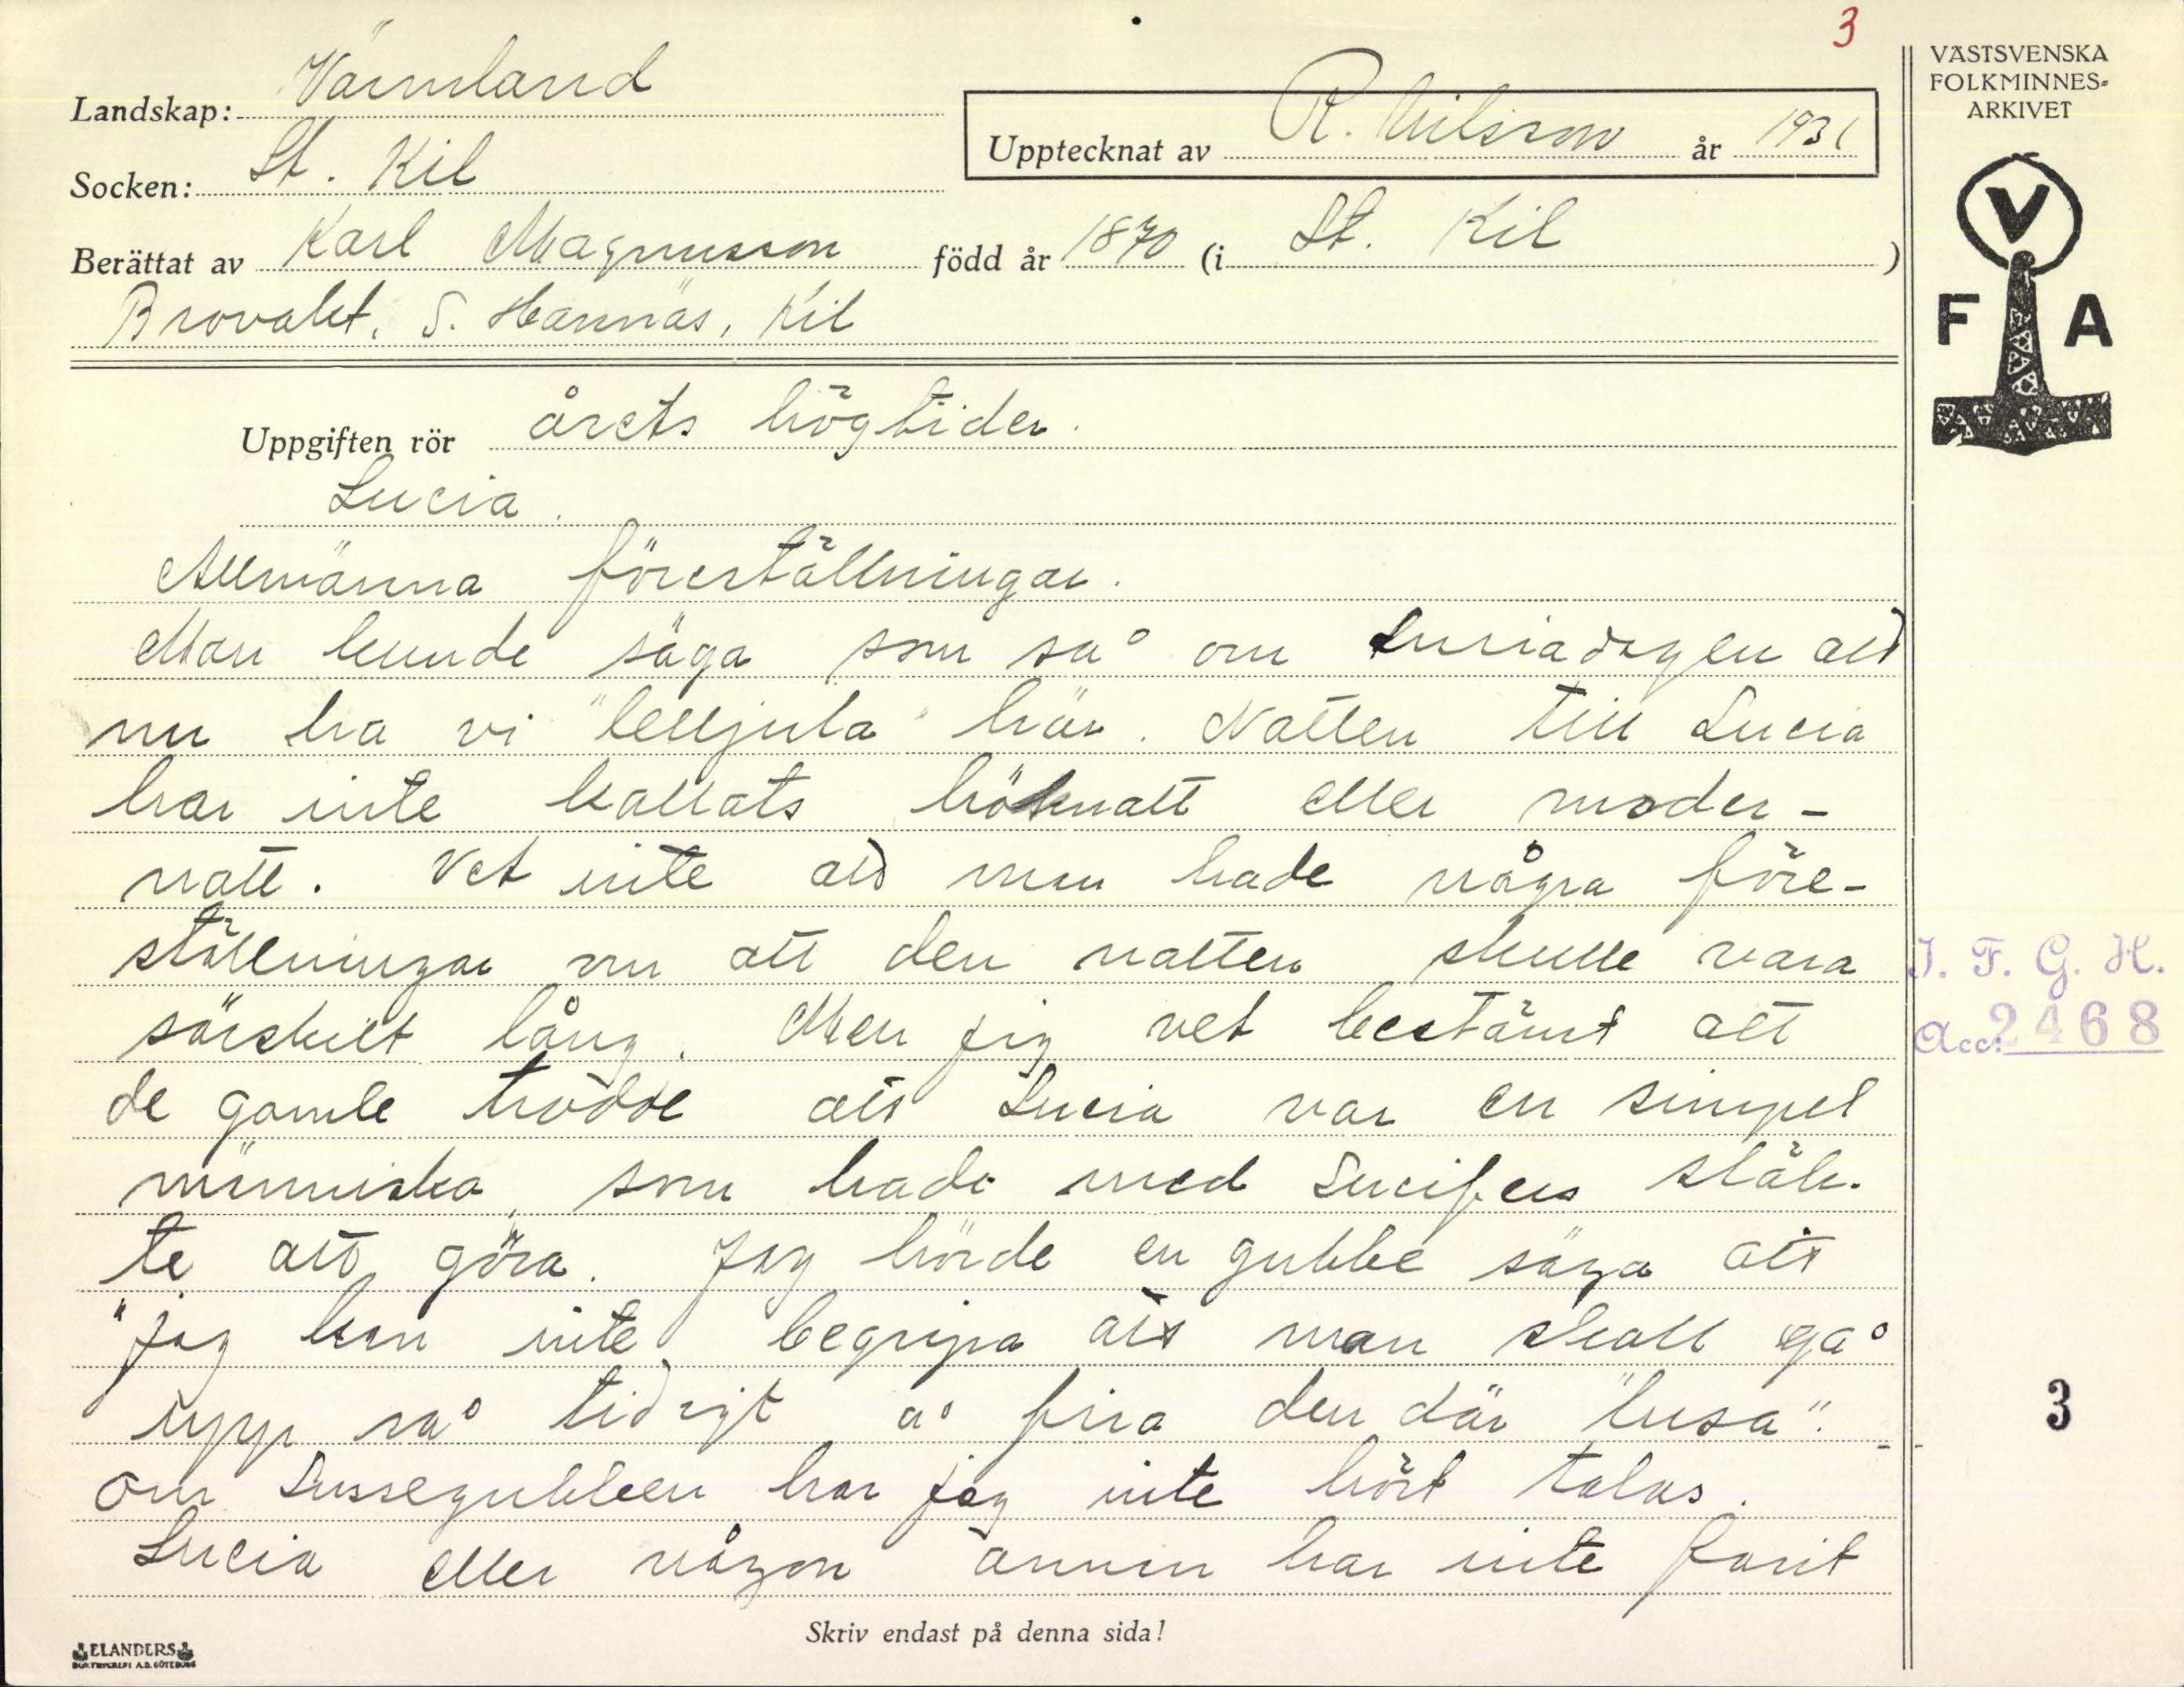 3
VÄSTSVENSKA
FOLKMINNES-
ARKIVET
Landskap: Värmland
Upptecknat av R. Nilsson år 1931
Socken: St. Kil
Berättat av Karl Magnusson född år 1870 (i St. Kil)
Brovalet, S. Hannäs, Kil
V
F A
Uppgiften rör årets högtider.
Lucia.
Allmänna föreställningar.
Man kunde säga som så om Luciadagen att
nu ha vi "lelljula" här. Natten till Lucia
har inte kallats höknatt eller moder-
natt. Vet inte att man hade några före-
ställningar om att den natten skulle vara
särskilt lång. Men jag vet bestämt att
de gamle trodde att Lucia var en simpel
människa, som hade med Lucifers släk-
te att göra. Jag hörde en gubbe säga att
"jag kan inte begripa att man skall gå
upp så tidigt å fira den där "lusa".
Om Lussegubben har jag inte hört talas.
Lucia eller någon annan har inte farit
I. F. G. H.
Acc. 2468
3
Skriv endast på denna sida!
ELANDERS
BOKTRYCKERI A.B. GÖTEBORG